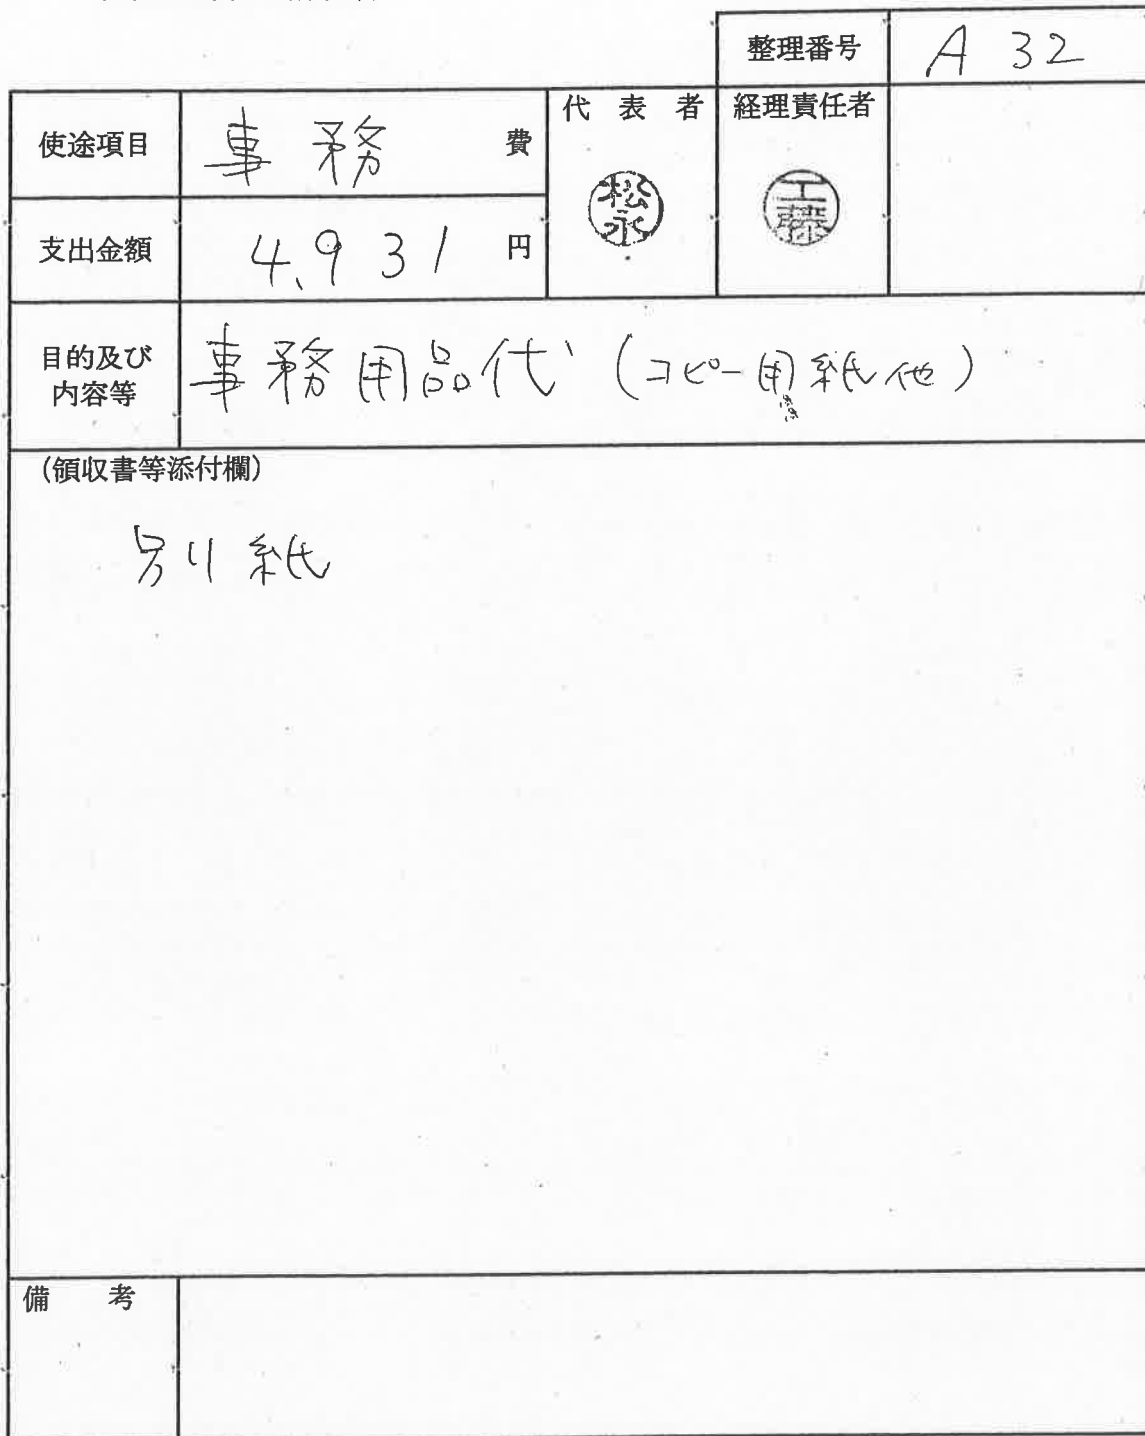 整理番号 A 32
使途項目 事務 費
代表者 経理責任者
松永 工藤
支出金額 4,931 円
目的及び内容等 事務用品代 (コピー用紙他)
(領収書等添付欄)
別紙
備考